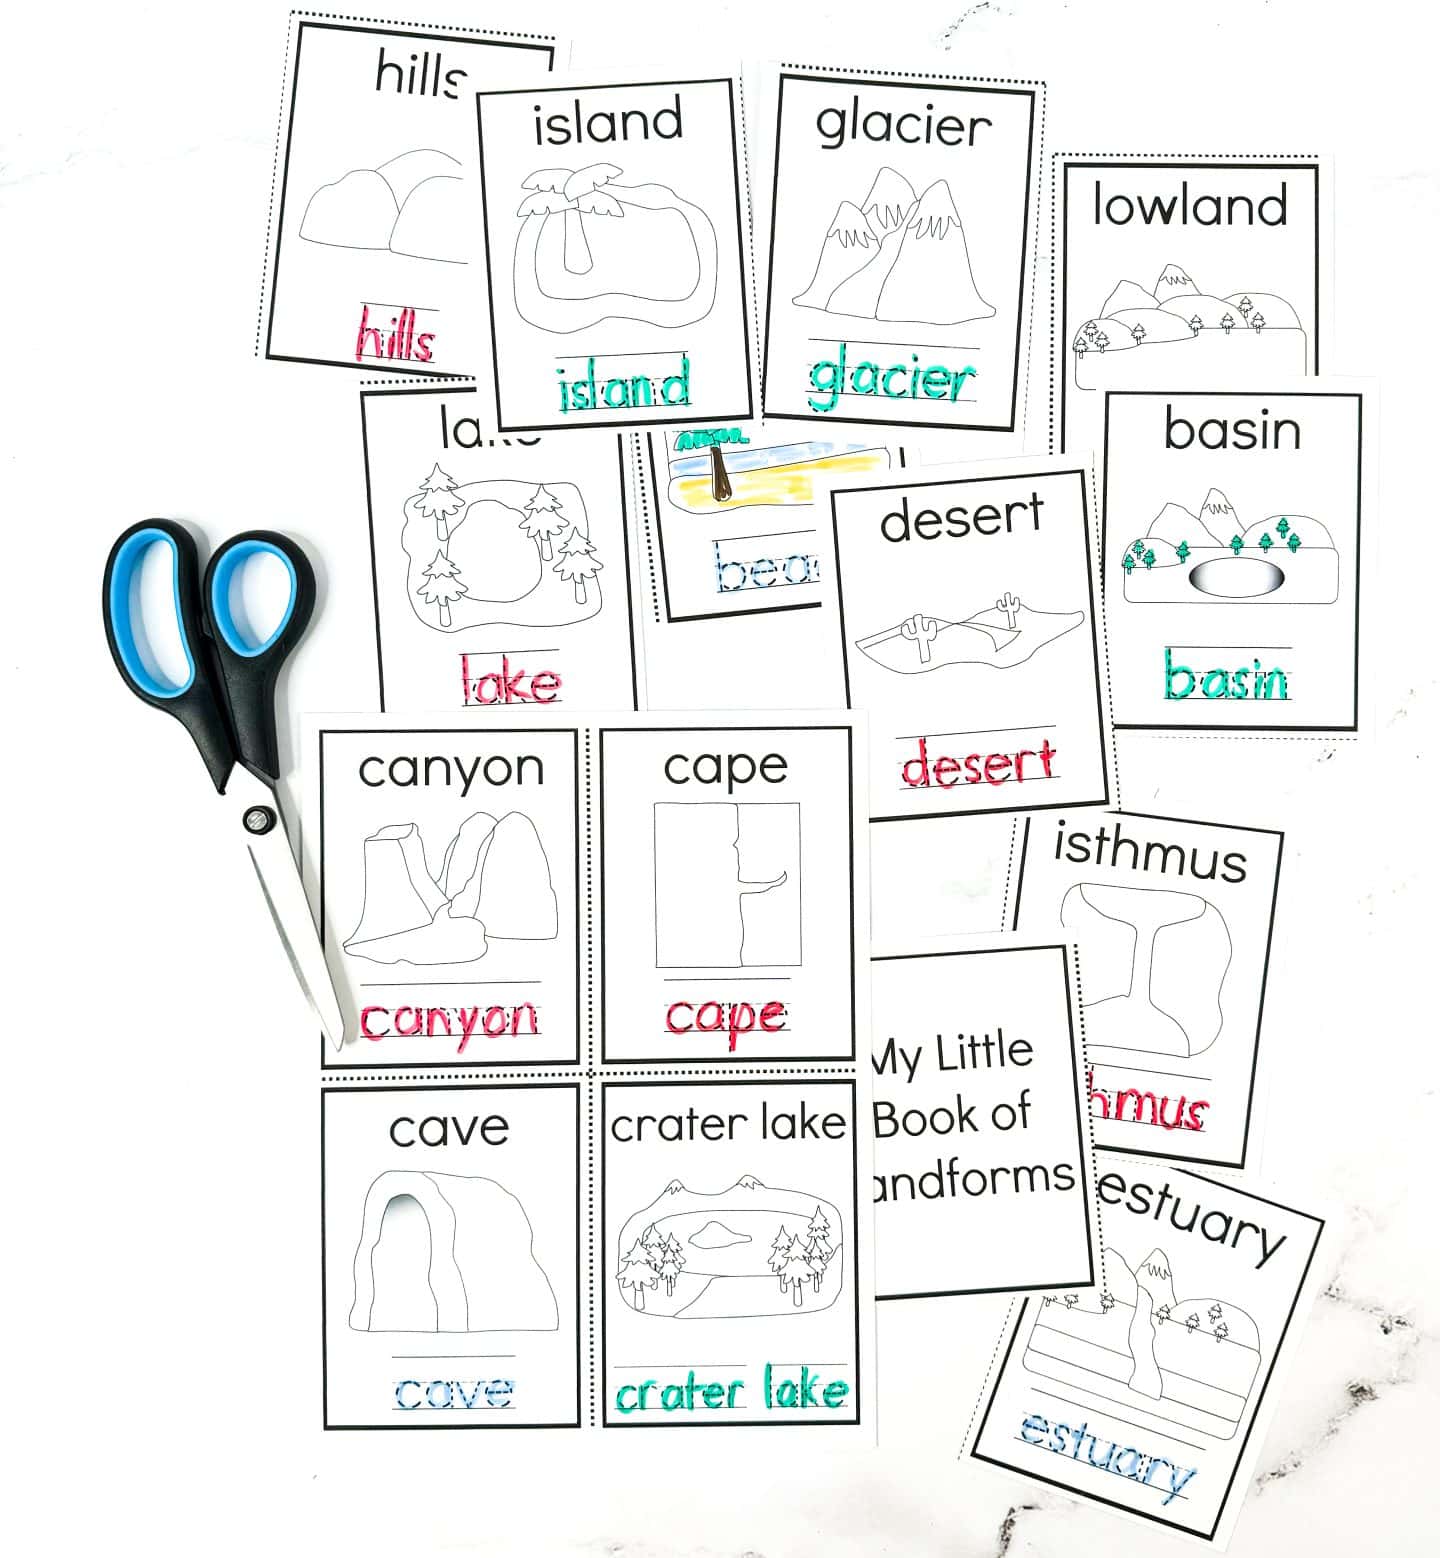 hills
hills
island
island
glacier
glacier
lowland
lake
lake
desert
desert
basin
basin
canyon
canyon
cape
cape
isthmus
hmus
My Little
Book of
andforms
cave
cave
crater lake
crater lake
estuary
estuary